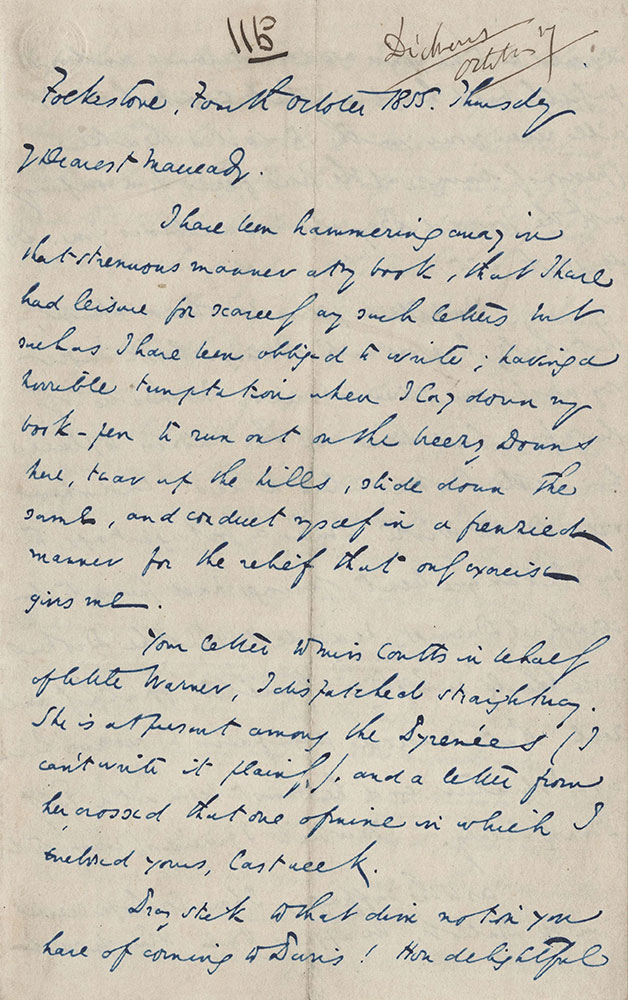 11B
Dickens
October 7
Folkestone, Fourth October 1855. Thursday
My Dearest Macready.
I have been hammering away in
that strenuous manner at my book, that I have
had leisure for scarcely any such letters but
such as I have been obliged to write; having a
horrible temptation when I lay down my
book-pen to run out on the breezy Downs
here, tear up the hills, slide down the
same, and conduct myself in a frenzied
manner for the relief that only exercise
gives me.
Your letter to Miss Coutts in behalf
of little Warner, I dispatched straightway.
She is at present among the Pyrenées (I
can't write it plainly), and a letter from
her crossed that one of mine in which I
enclosed yours, last week.
Pray stick to that dim notion you
have of coming to Paris! How delightful